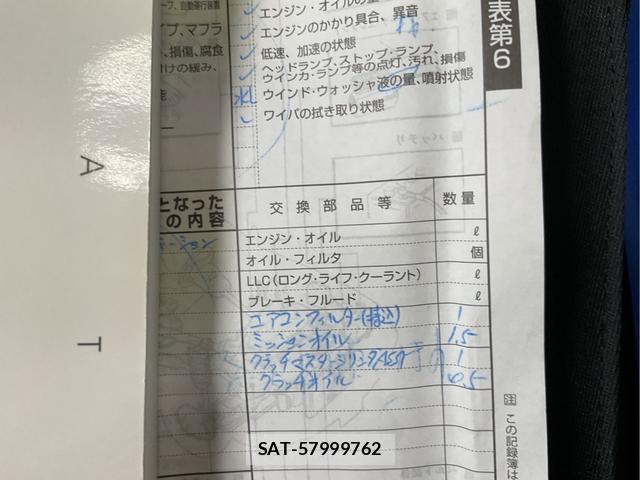 表第6
プ、自動運行装置
エンジン・オイルの量
エンジンのかかり具合、異音
低速、加速の状態
ヘッドランプ、ストップ・ランプ、
ウインカ・ランプ等の点灯、汚れ、損傷
ウインド・ウォッシャ液の量、噴射状態
ワイパの拭き取り状態
プ、マフラ
、損傷、腐食
付けの緩み、
能
バッテリ
A
T
となった
の内容
交換部品等
数量
エンジン・オイル
ℓ
オイル・フィルタ
個
LLC(ロング・ライフ・クーラント)
ℓ
ブレーキ・フルード
ℓ
エアコンフィルター(持込)
1
ミッションオイル
1.5
クラッチマスターシリンダASSY
1
クラッチオイル
0.5
注 この記録簿は
SAT-57999762